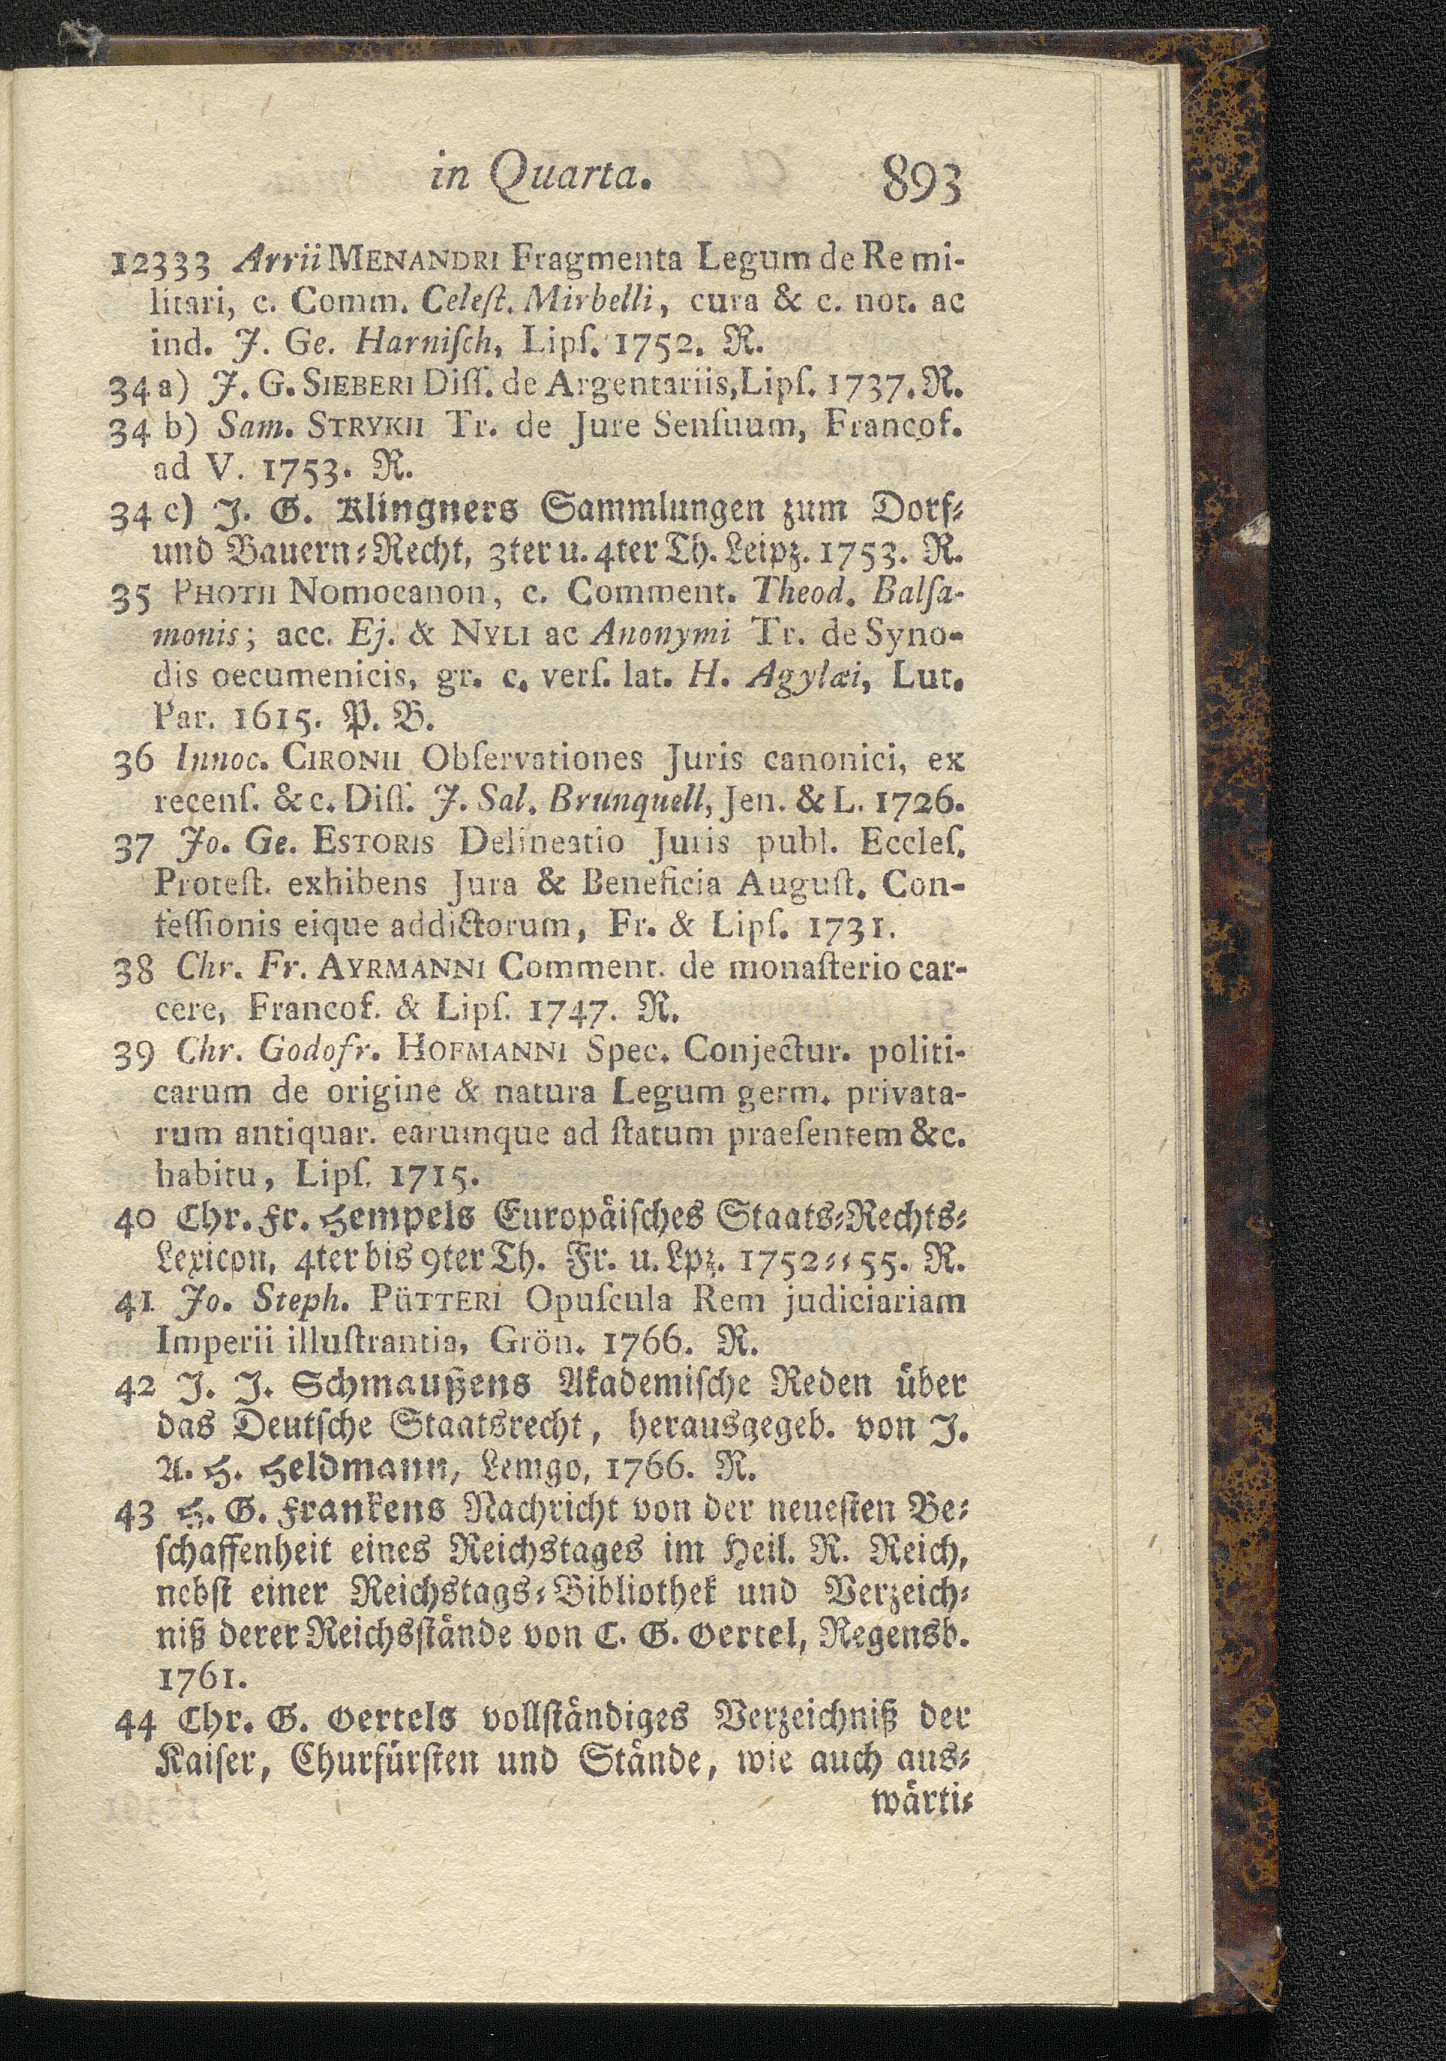 in Quarta. 893
12333 Arrii MENANDRI Fragmenta Legum de Re mi-
litari, c. Comm. Celeſt. Mirbelli, cura & c. not. ac
ind. J. Ge. Harniſch, Lipſ. 1752. R.
34 a) J. G. SIEBERI Diſſ. de Argentariis, Lipſ. 1737. R.
34 b) Sam. STRYKII Tr. de Jure Senſuum, Francof.
ad V. 1753. R.
34 c) J. G. Klingners Sammlungen zum Dorf-
und Bauern-Recht, 3ter u. 4ter Th. Leipz. 1753. R.
35 PHOTII Nomocanon, c. Comment. Theod. Balſa-
monis; acc. Ej. & NYLI ac Anonymi Tr. de Syno-
dis oecumenicis, gr. c. verſ. lat. H. Agylæi, Lut.
Par. 1615. P. B.
36 Innoc. CIRONII Obſervationes Juris canonici, ex
recenſ. & c. Diſſ. J. Sal. Brunquell, Jen. & L. 1726.
37 Jo. Ge. ESTORIS Delineatio Juris publ. Eccleſ.
Proteſt. exhibens Jura & Beneficia Auguſt. Con-
feſſionis eique addictorum, Fr. & Lipſ. 1731.
38 Chr. Fr. AYRMANNI Comment. de monaſterio car-
cere, Francof. & Lipſ. 1747. R.
39 Chr. Godofr. HOFMANNI Spec. Conjectur. politi-
carum de origine & natura Legum germ. privata-
rum antiquar. earumque ad ſtatum praeſentem &c.
habitu, Lipſ. 1715.
40 Chr. Fr. Hempels Europäiſches Staats-Rechts-
Lexicon, 4ter bis 9ter Th. Fr. u. Lpz. 1752--55. R.
41 Jo. Steph. PÜTTERI Opuſcula Rem judiciariam
Imperii illuſtrantia, Grön. 1766. R.
42 J. J. Schmaußens Akademiſche Reden über
das Deutſche Staatsrecht, herausgegeb. von J.
A. H. Heldmann, Lemgo, 1766. R.
43 H. G. Frankens Nachricht von der neueſten Be-
ſchaffenheit eines Reichstages im Heil. R. Reich,
nebſt einer Reichstags-Bibliothek und Verzeich-
niß derer Reichsſtände von C. G. Oertel, Regensb.
1761.
44 Chr. G. Oertels vollſtändiges Verzeichniß der
Kaiſer, Churfürſten und Stände, wie auch aus-
wärti-